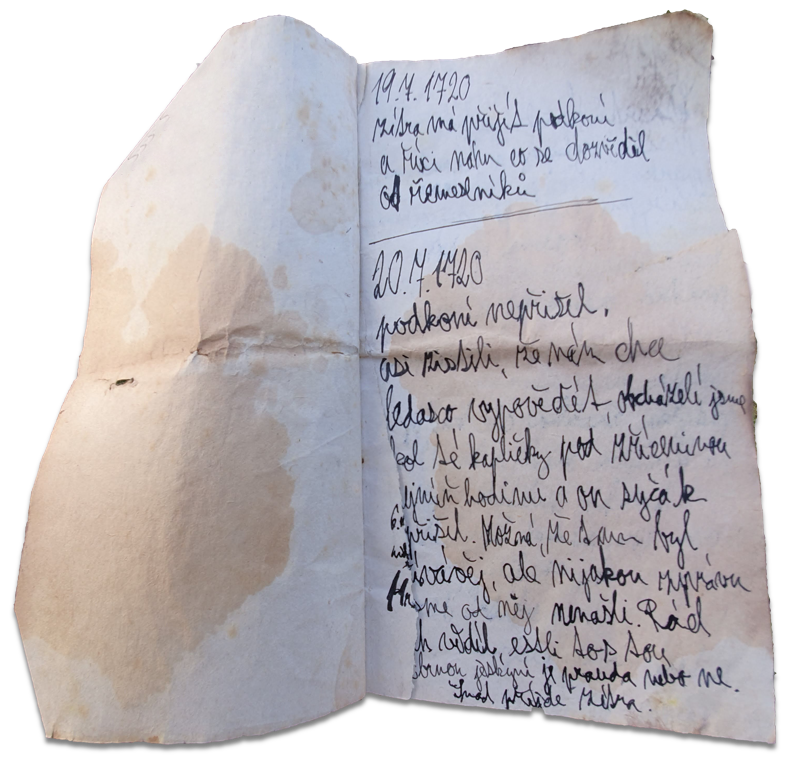 19.7.1720
zítra má přijít podkoní
a říci nám co se dozvěděl
od řemeslníků
20.7.1720
podkoní nepřišel.
asi zistili, že nám chce
ledasco vypovědět, obcházeli jsme
kol té kapličky pod zříceninou
hodinu a on syčák
přišel. Možná, že tam byl
ale nijakou zprávu
sme od něj nenašli. Rád
h věděl, estli to s tou
brnou jeskyní je pravda nebo ne.
Snad příjde zítra.